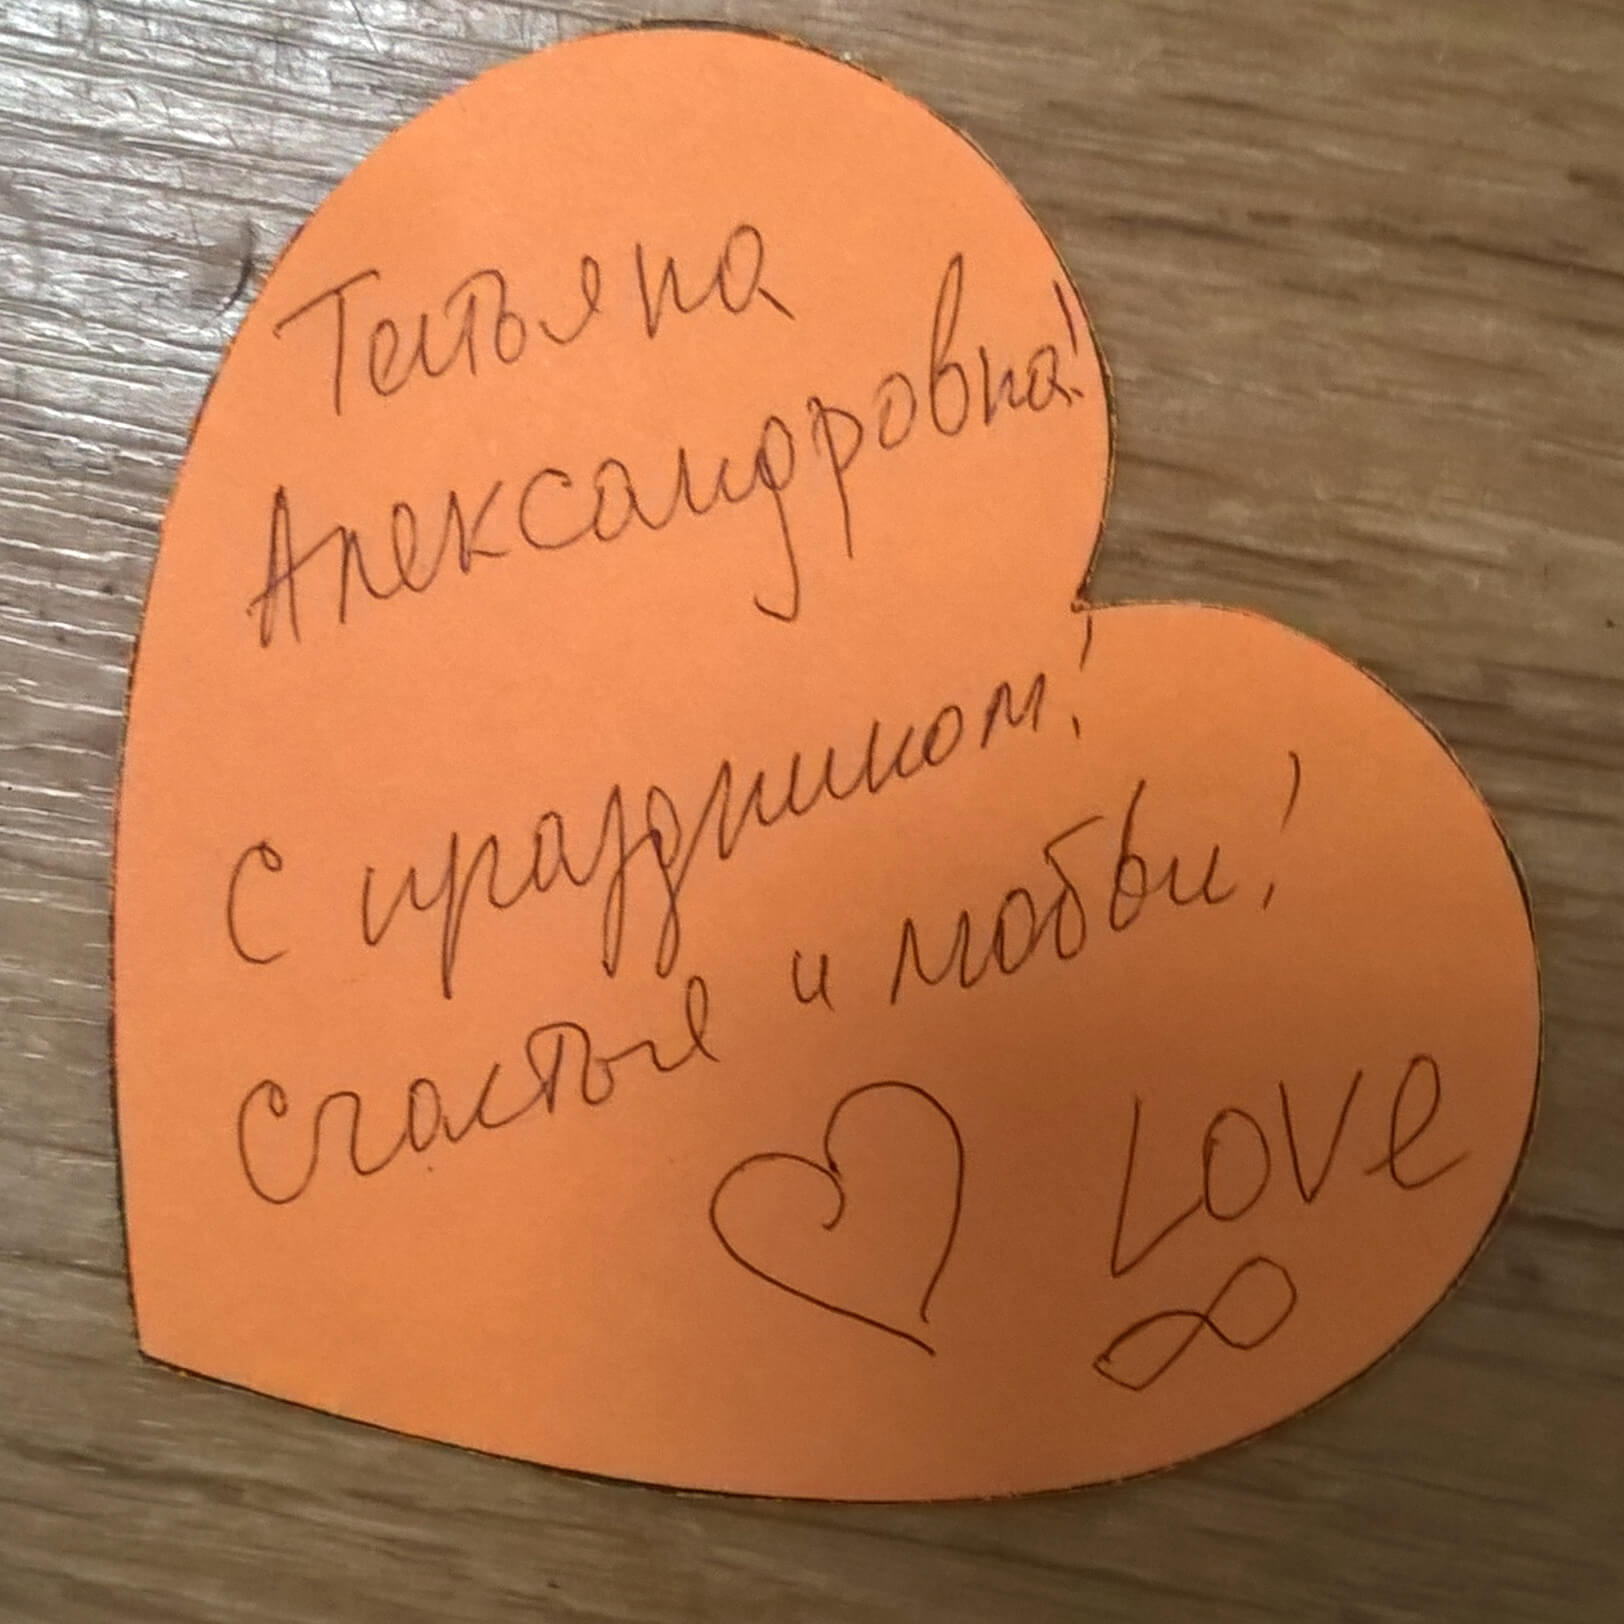 Татьяна
Александровна!
С праздником!
Счастья и любви!
LOVe